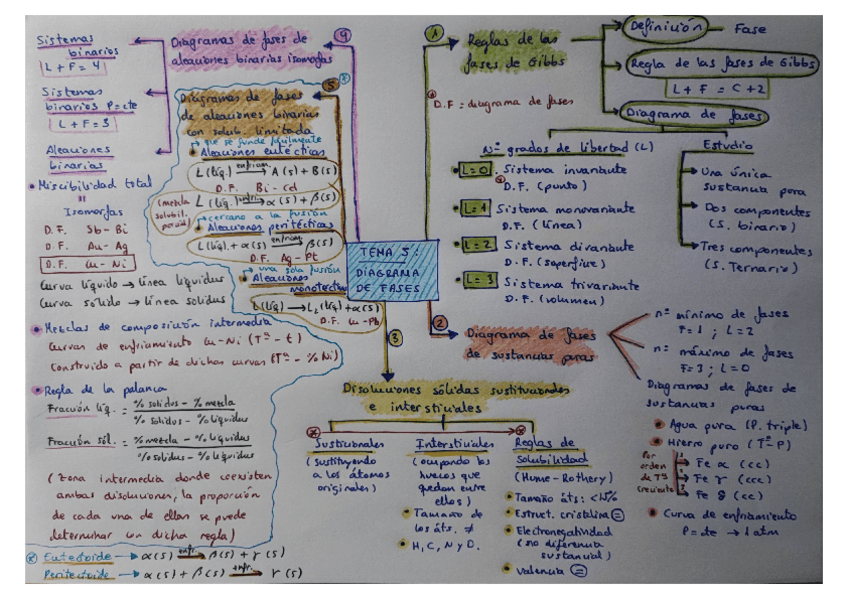 TEMA 5:
DIAGRAMA
DE FASES
① Reglas de las
fases de Gibbs
* D.F = diagrama de fases
Definición → Fase
Regla de las fases de Gibbs
L + F = C + 2
Diagrama de fases
Nº grados de libertad (L)
L = 0. Sistema invariante
* D.F. (punto)
L = 1 Sistema monovariante
D.F. (línea)
L = 2 Sistema divariante
D.F. (superfice)
L = 3 Sistema trivariante
D.F. (volumen)
Estudio
Una única
sustancia pura
Dos componentes
(S. binario)
Tres componentes
(S. Ternario)
② Diagrama de fases
de sustancias puras
nº mínimo de fases
F = 1 ; L = 2
nº máximo de fases
F = 3 ; L = 0
Diagramas de fases de
sustancias puras
Agua pura (P. triple)
Hierro puro (Tª-P)
Por
orden
de Tª
creciente
Fe α (cc)
Fe γ (ccc)
Fe δ (cc)
Curva de enfriamiento
P = cte → 1 atm
③
Disoluciones sólidas sustitucionales
e intersticiales
Sustitucionales
(sustituyendo
a los átomos
originales)
Intersticiales
(ocupando los
huecos que
quedan entre
ellos)
Tamaño de
los áts. ≠
H, C, N y O.
Reglas de
Solubilidad
(Hume-Rothery)
Tamaño áts: <15%
Estruct. cristalina =
Electronegatividad
(no diferencia
sustancial)
Valencia =
④
Diagramas de fases de
aleaciones binarias isomorfas
Sistemas
binarios
L + F = 4
Sistemas
binarios P=cte
L + F = 3
Aleaciones
binarias
Miscibilidad total
=
Isomorfas
D.F. Sb - Bi
D.F. Au - Ag
D.F. Cu - Ni
Curva líquido → línea líquidus
Curva sólido → línea solidus
Mezclas de composición intermedia
Curvas de enfriamiento Cu-Ni (Tª - t)
Construido a partir de dichas curvas (Tª - % Ni)
Regla de la palanca
Fracción líq. = % solidus - % mezcla
% solidus - % líquidus
Fracción sól. = % mezcla - % líquidus
% solidus - % líquidus
(Zona intermedia donde coexisten
ambas disoluciones, la proporción
de cada una de ellas se puede
determinar con dicha regla)
⑤
Diagramas de fases
de aleaciones binarias
con solub. limitada
→ que se funde fácilmente
Aleaciones eutécticas
L (líq.) enfriam. → A(s) + B(s)
D.F. Bi - Cd
(mezcla
solubil.
parcial)
L (líq.) enfr. → α(s) + β(s)
→ cercano a la fusión
Aleaciones peritécticas
L (líq.) + α(s) enfriam. → β(s)
D.F. Ag - Pt
→ una sola fusión
Aleaciones
monotécticas
L (líq) → L₂ (líq) + α(s)
D.F. Cu - Pb
* Eutectoide → α(s) enfr. → β(s) + γ(s)
Peritectoide → α(s) + β(s) enfr. → γ(s)